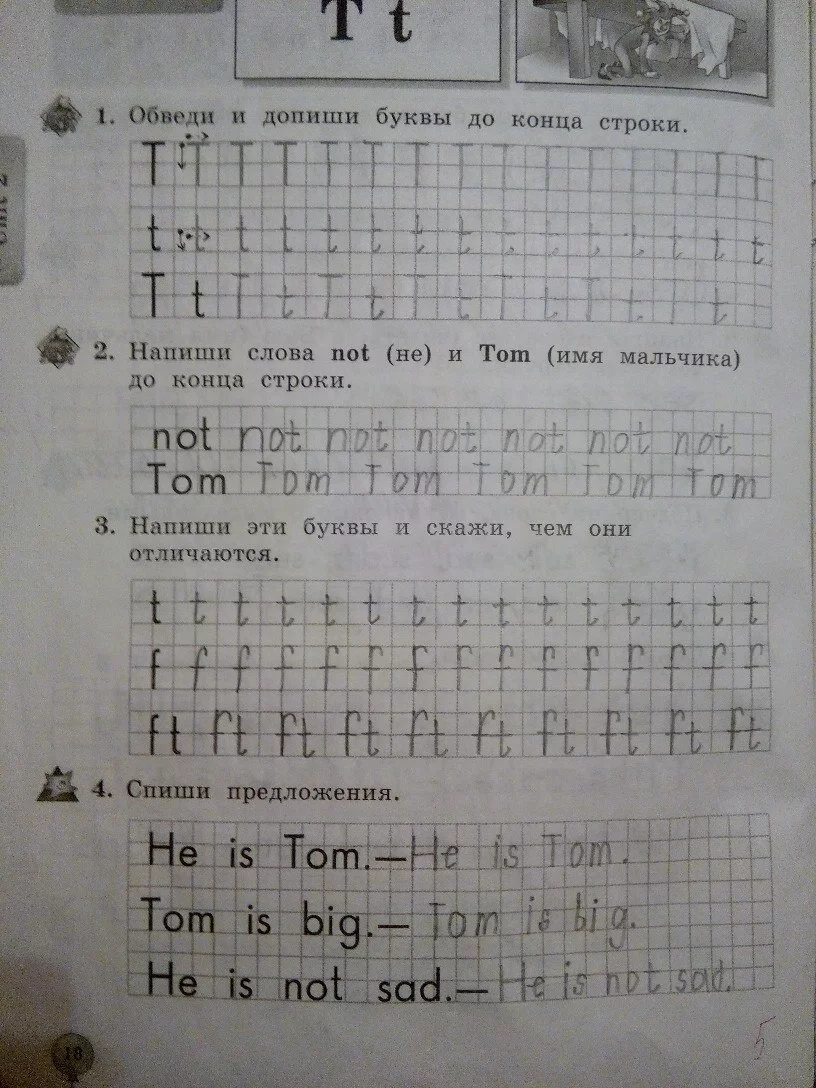 T t
1. Обведи и допиши буквы до конца строки.
T T T T T T T T T T T T T T T
t t t t t t t t t t t t t t t
T t T t T t T t T t T t T t
2. Напиши слова not (не) и Tom (имя мальчика)
до конца строки.
not not not not not not not
Tom Tom Tom Tom Tom Tom
3. Напиши эти буквы и скажи, чем они
отличаются.
t t t t t t t t t t t t t t t
f f f f f f f f f f f f f f f
ft ft ft ft ft ft ft ft ft ft
4. Спиши предложения.
He is Tom.—He is Tom.
Tom is big.—Tom is big.
He is not sad.—He is not sad.
5
18
Unit 2